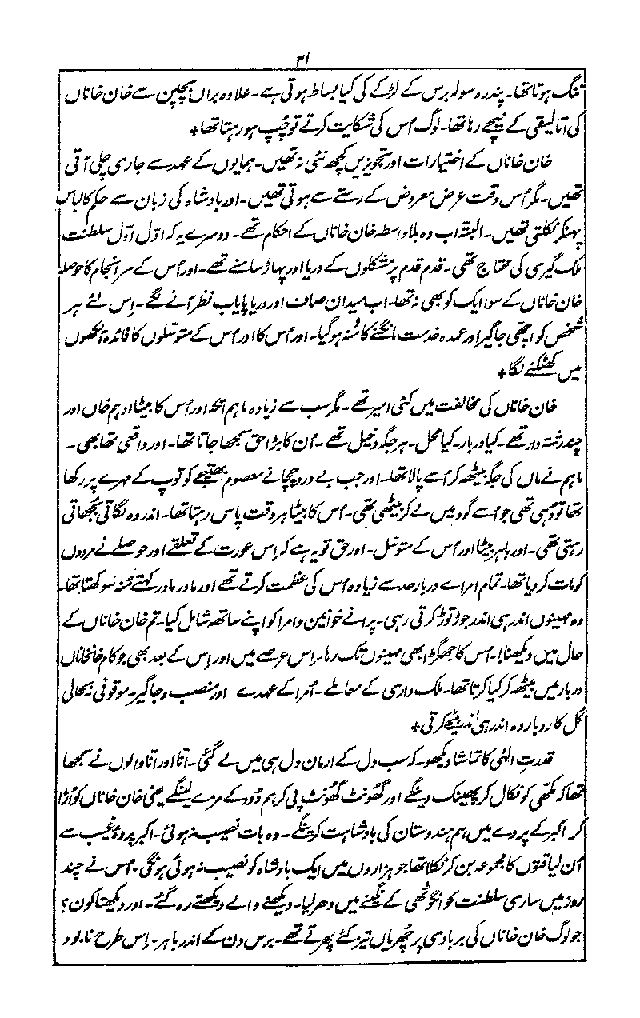 ۳۱
تنگ ہوتا تھا۔ پندرہ سولہ برس کے لڑکے کی کیا بساط ہوتی ہے۔ علاوہ براں بچپن سے خان خاناں
کی اتالیقی کے نیچے رہا تھا۔ لوگ اُس کی شکایت کرتے تو چُپ ہو رہتا تھا +
خان خاناں کے اختیارات اور تجویزیں کچھ نئی نہ تھیں۔ ہمایوں کے عہد سے جاری چلی آتی
تھیں۔ مگر اُس وقت عرض معروض کے رستے سے ہوتی تھیں۔ اور بادشاہ کی زبان سے حکم کا لباس
پہنکر نکلتی تھیں۔ البتہ اب وہ بلا واسطہ خان خاناں کے احکام تھے۔ دوسرے یہ کہ اوّل اوّل سلطنت
ملک گیری کی محتاج تھی۔ قدم قدم پر مشکلوں کے دریا اور پہاڑ سامنے تھے۔ اور اُس کے سرانجام کا حوصلہ
خان خاناں کے سوا ایک کو بھی نہ تھا۔ اب میدان صاف اور دریا پایاب نظر آنے لگے۔ اِس لئے ہر
شخص کو اچھی جاگیر اور عمدہ خدمت مانگنے کا مُنہ ہو گیا۔ اور اُس کا اور اُس کے متوسّلوں کا فائدہ آنکھوں
میں کھٹکنے لگا +
خان خاناں کی مخالفت میں کئی امیر تھے۔ مگر سب سے زیادہ ماہم اتکہ اور اُس کا بیٹا ادہم خاں اور
چند رشتہ دار تھے۔ کیا دربار۔ کیا محل۔ ہر جگہ دخیل تھے۔ اُن کا بڑا حق سمجھا جاتا تھا۔ اور واقعی تھا بھی۔
ماہم نے ماں کی جگہ بیٹھ کر اُسے پالا تھا۔ اور جب بے درد چچا نے معصوم بھتیجے کو توپ کے مہرے پر رکھا
تھا تو وہی تھی جو اُسے گود میں لے کر بیٹھی تھی۔ اُس کا بیٹا ہر وقت پاس رہتا تھا۔ اندر وہ لگاتی بجھاتی
رہتی تھی۔ اور باہر بیٹا اور اُس کے متوسّل۔ اور حق تو یہ ہے کہ اِس عورت کے تعلقے اور حوصلے نے مردوں
کو مات کر دیا تھا۔ تمام امرائے دربار حد سے زیادہ اُس کی عظمت کرتے تھے اور مادر مادر کہتے مُنہ سوکھتا تھا۔
وہ مہینوں اندر ہی اندر جوڑ توڑ کرتی رہی۔ پرانے خوانین و امرا کو اپنے ساتھ شامل کیا۔ تم خان خاناں کے
حال میں دیکھنا! اُس کا جھگڑا بھی مہینوں تک رہا۔ اِس عرصے میں اور اِس کے بعد بھی جو کام خانخاناں
دربار میں بیٹھ کر کیا کرتا تھا۔ ملک داری کے معاملے۔ اُمرا کے عہدے اور منصب و جاگیر۔ موقوفی بحالی
کُل کاروبار وہ اندر ہی اندر بیٹھے کرتی +
قدرت الٰہی کا تماشا دیکھو کہ سب دل کے ارمان دل ہی میں لے گئی۔ اتا اور اتا والوں نے سمجھا
تھا کہ مکھی کو نکال کر پھینک دینگے اور گھونٹ گھونٹ پی کر ہم دُودھ کے مزے لینگے یعنی خان خاناں کو اُڑا
کر اکبر کے پردے میں ہم ہندوستان کی بادشاہت کرینگے۔ وہ بات نصیب نہ ہوئی۔ اکبر پردۂ غیب سے
اُن لیاقتوں کا مجموعہ بن کر نکلا تھا جو ہزاروں میں ایک بادشاہ کو نصیب نہ ہوئی ہونگی۔ اُس نے چند
روز میں ساری سلطنت کو انگوٹھی کے نگینے میں دھر لیا۔ دیکھنے والے دیکھتے رہ گئے۔ اور دیکھتا کون؟
جو لوگ خان خاناں کی بربادی پر چھُریاں تیز کئے پھرتے تھے۔ برس دن کے اندر باہر۔ اِس طرح نابود